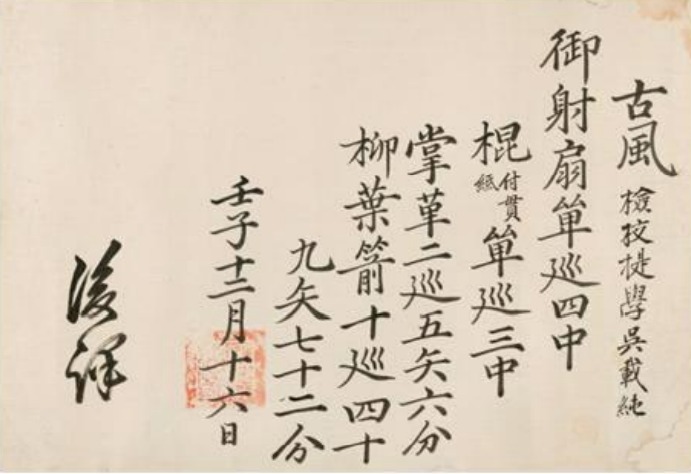 古風 檢校提學吳載純
御射扇單巡四中
棍 付貫紙 單巡三中
掌革二巡五矢六分
柳葉箭十巡四十
九矢七十二分
壬子十二月十六日
後